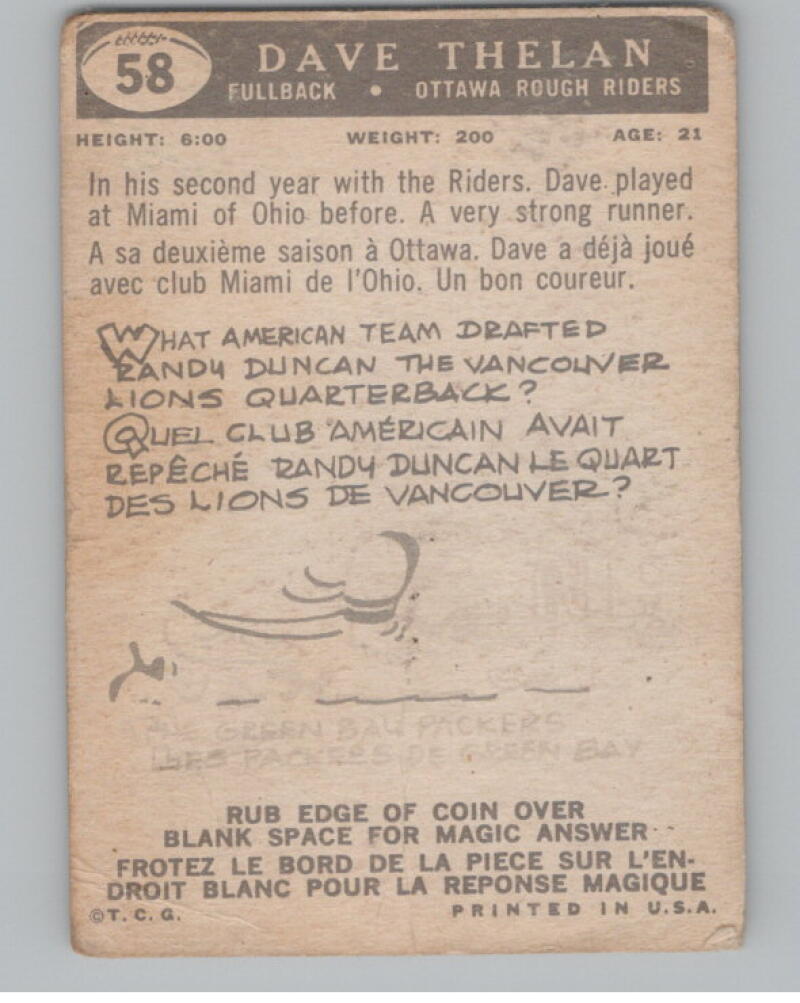 58
DAVE THELAN
FULLBACK • OTTAWA ROUGH RIDERS
HEIGHT: 6:00 WEIGHT: 200 AGE: 21
In his second year with the Riders. Dave played
at Miami of Ohio before. A very strong runner.
A sa deuxième saison à Ottawa. Dave a déjà joué
avec club Miami de l'Ohio. Un bon coureur.
WHAT AMERICAN TEAM DRAFTED
RANDY DUNCAN THE VANCOUVER
LIONS QUARTERBACK?
QUEL CLUB AMÉRICAIN AVAIT
REPÊCHÉ RANDY DUNCAN LE QUART
DES LIONS DE VANCOUVER?
THE GREEN BAY PACKERS
LES PACKERS DE GREEN BAY
RUB EDGE OF COIN OVER
BLANK SPACE FOR MAGIC ANSWER
FROTEZ LE BORD DE LA PIECE SUR L'EN-
DROIT BLANC POUR LA REPONSE MAGIQUE
©T. C. G. PRINTED IN U.S.A.